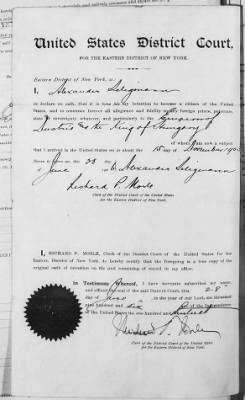 United States District Court,
FOR THE EASTERN DISTRICT OF NEW YORK.
Eastern District of New York, ss:
I, Alexander Seligmann
do declare on oath, that it is bona fide my intention to become a citizen of the United
States, and to renounce forever all allegiance and fidelity to any foreign prince, potentate,
state or sovereignty whatever, and particularly to the Emperor of
Austria & the King of Hungary
of whom I am now a subject
that I arrived in the United States on or about the 15 day of November 190
Sworn to before me, this 28
June Alexander Seligmann
Richard P. Morle
Clerk of the District Court of the United States
for the Eastern District of New York.
I, RICHARD P. MORLE, Clerk of the District Court of the United States for the Eastern
District of New York, do hereby certify that the foregoing is a true copy of the
original oath of intention on file and remaining of record in my office.
In Testimony Whereof, I have hereunto subscribed my name,
and affixed the seal of the said District Court, this 28
day of June in the year of our Lord, one thousand
nine hundred and six of the Independence
of the United States the one hundred and
Richard P. Morle
Clerk of the District Court of the United States
for the Eastern District of New York.